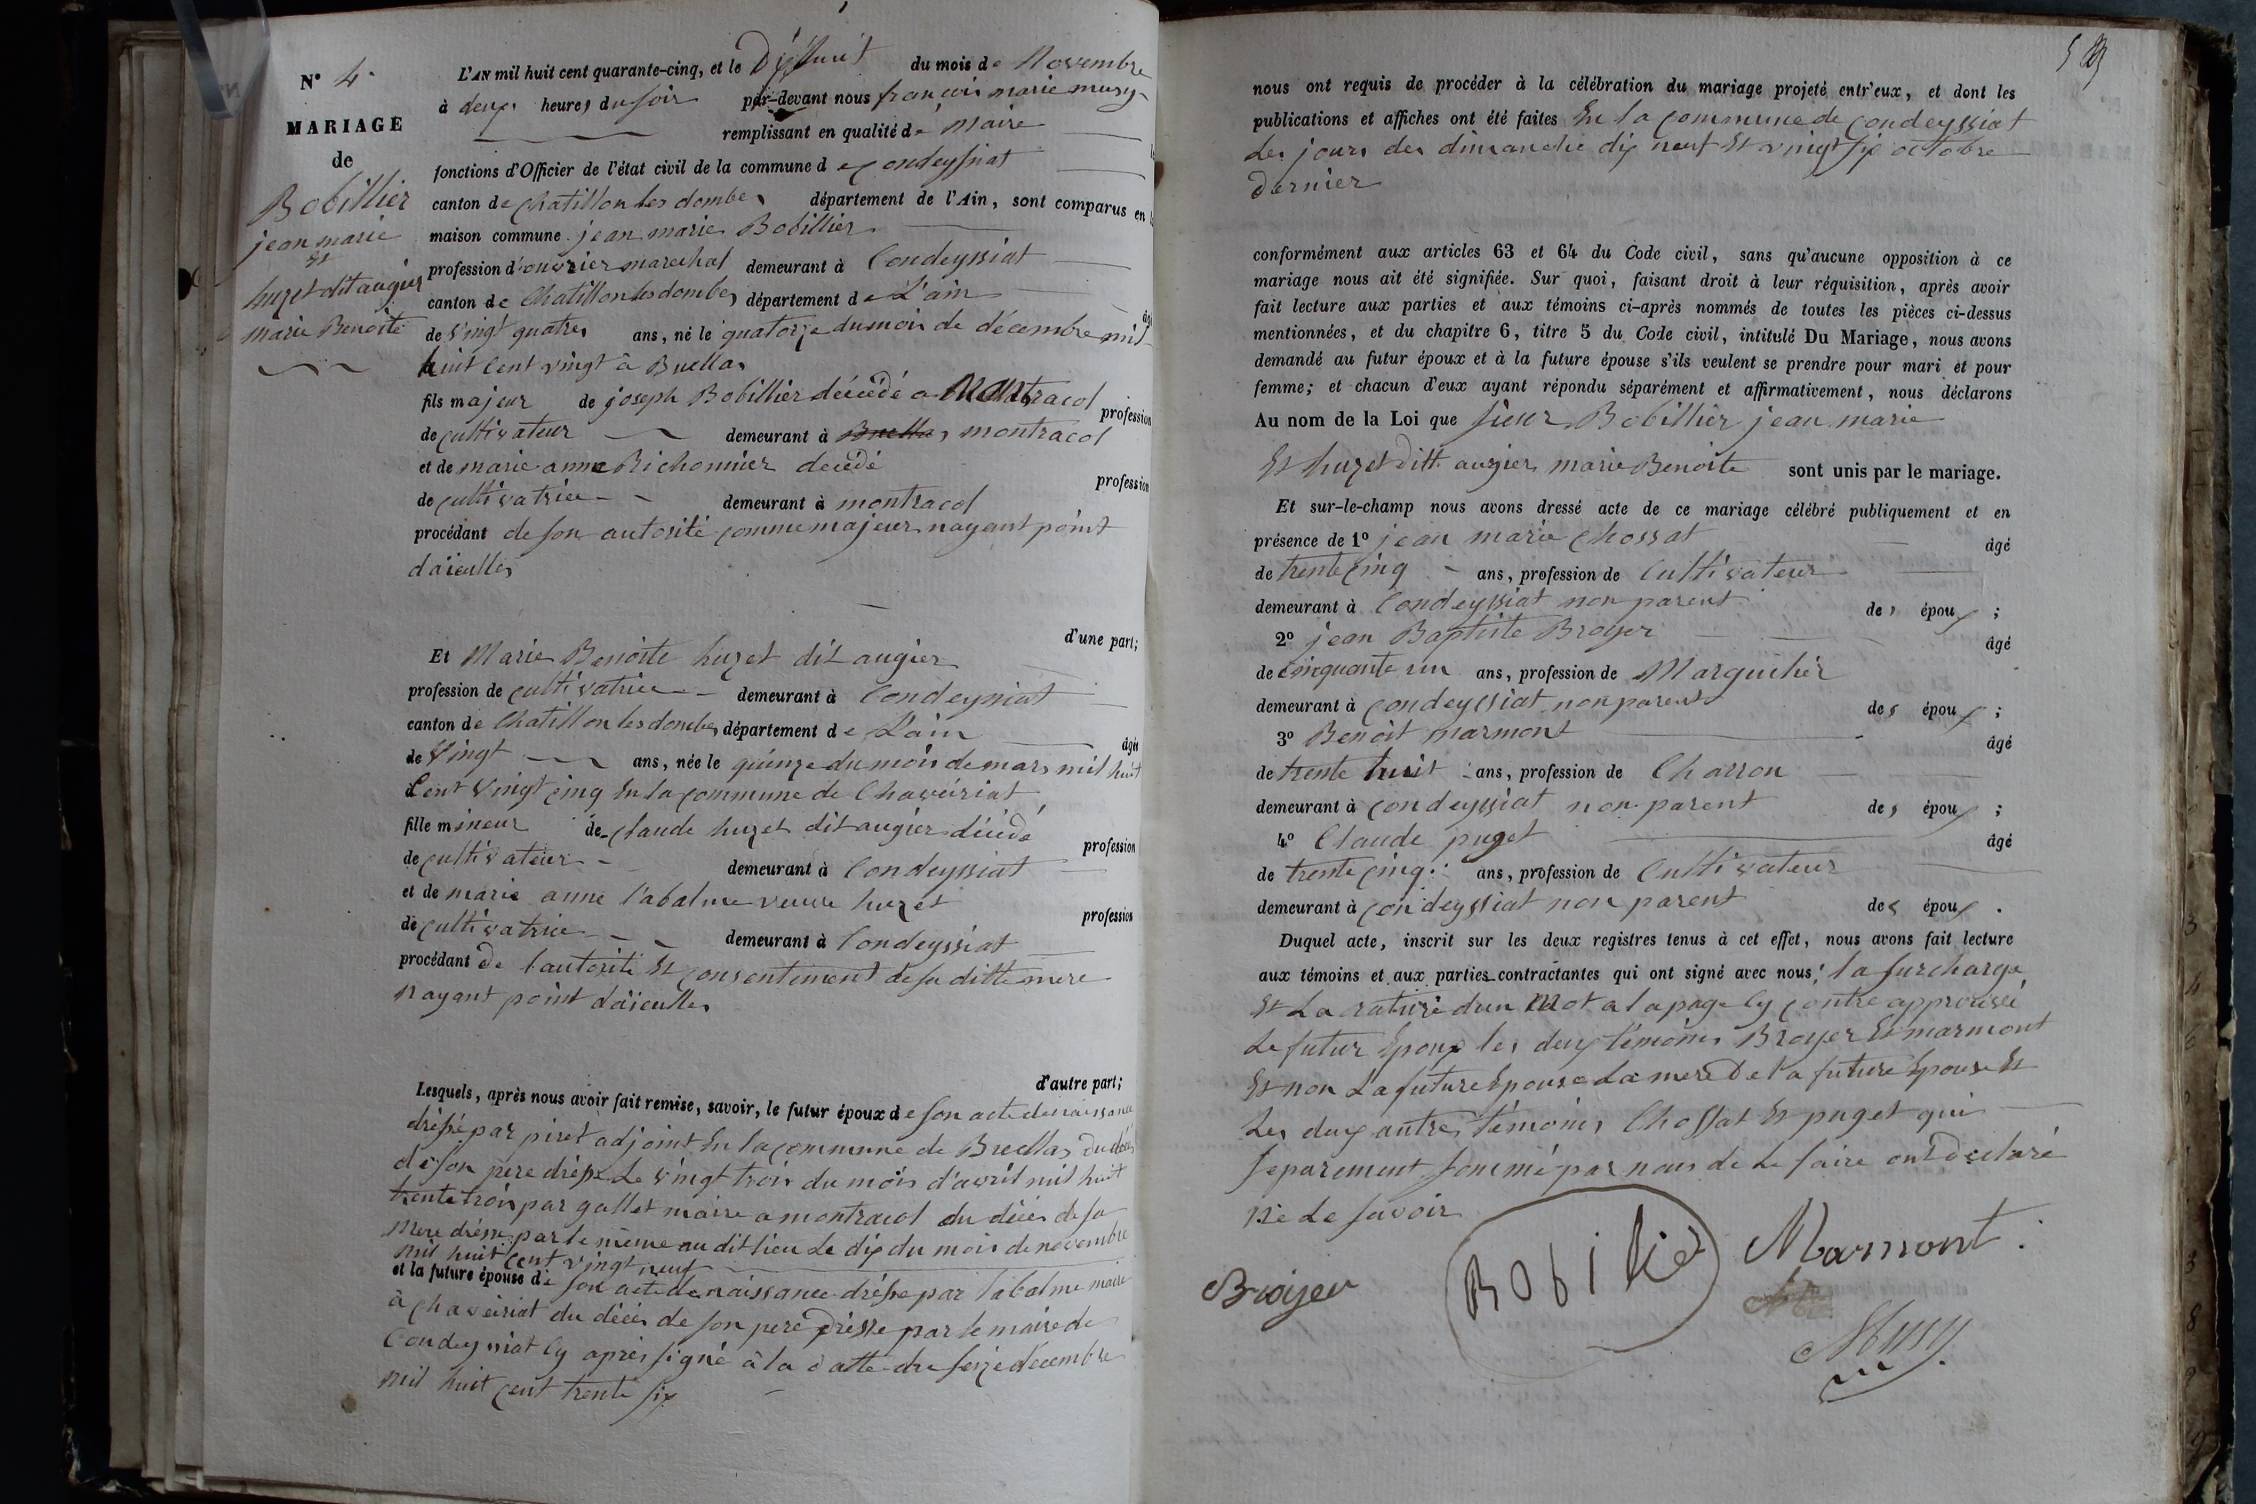 N° 4.
MARIAGE
de
Bobillier
jean marie
Et
huzet dit augier
marie Benoite
L'AN mil huit cent quarante-cinq, et le Dixhuit du mois de Novembre
à deux heures du soir par-devant nous françois marie musy
remplissant en qualité de Maire
fonctions d'Officier de l'état civil de la commune de Condeyssiat
canton de Chatillon les dombes département de l'Ain, sont comparus en la
maison commune jean marie Bobillier
profession d'ouvrier marechal demeurant à Condeyssiat
canton de Chatillon les dombes département de L'ain âgé
de vingt quatre ans, né le quatorze du mois de décembre mil
huit Cent vingt à Buellas
fils majeur de joseph Bobillier décédé a Montracol profession
de cultivateur demeurant à Buellas montracol
et de marie anne Richonnier decédé profession
de cultivatrice demeurant à montracol
procédant de son autorité comme majeur nayant point
daieulles
d'une part;
Et Marie Benoite huzet dit augier
profession de cultivatrice demeurant à Condeyssiat
canton de Chatillon les dombes département de L'ain âgée
de Vingt ans, née le quinze du mois de mars mil huit
Cent Vingt cinq En la commune de Chaveiriat
fille mineur de claude huzet dit augier décédé profession
de cultivateur demeurant à Condeyssiat
et de marie anne l'abalme veuve huzet profession
de cultivatrice demeurant à Condeyssiat
procédant de l'autorité Et consentement de sa ditte mere
nayant point daieulles
d'autre part;
Lesquels, après nous avoir fait remise, savoir, le futur époux de son acte de naissance
dréssé par piret adjoint En la commune de Buellas du décés
de son pere dréssé Le vingt trois du mois d'avril mil huit
trente trois par gallet maire a montracol du décés de sa
mere dréssé par le même au dit lieu Le dix du mois de novembre
mil huit cent vingt neuf
et la future épouse de son acte de naissance dréssé par labalme maire
à chaveiriat du décés de son pere dréssé par le maire de
Condeyssiat Cy après signé à la datte du seize décembre
mil huit cent trente six
nous ont requis de procéder à la célébration du mariage projeté entr'eux, et dont les
publications et affiches ont été faites En la commune de Condeyssiat
Les jours des dimanche dix neuf Et vingt six octobre
dernier
conformément aux articles 63 et 64 du Code civil, sans qu'aucune opposition à ce
mariage nous ait été signifiée. Sur quoi, faisant droit à leur réquisition, après avoir
fait lecture aux parties et aux témoins ci-après nommés de toutes les pièces ci-dessus
mentionnées, et du chapitre 6, titre 5 du Code civil, intitulé Du Mariage, nous avons
demandé au futur époux et à la future épouse s'ils veulent se prendre pour mari et pour
femme; et chacun d'eux ayant répondu séparément et affirmativement, nous déclarons
Au nom de la Loi que sieur Bobillier jean marie
Et huzet ditt augier marie Benoite sont unis par le mariage.
Et sur-le-champ nous avons dressé acte de ce mariage célébré publiquement et en
présence de 1° jean marie Chossat âgé
de trente cinq ans, profession de Cultivateur
demeurant à Condeyssiat non parent des époux ;
2° jean Baptiste Broyer âgé
de cinquante un ans, profession de Marguilier
demeurant à condeyssiat non parent des époux ;
3° Benoit marmont âgé
de trente huit ans, profession de Charron
demeurant à condeyssiat non parent des époux ;
4° Claude puget âgé
de trente cinq ans, profession de Cultivateur
demeurant à condeyssiat non parent des époux .
Duquel acte, inscrit sur les deux registres tenus à cet effet, nous avons fait lecture
aux témoins et aux parties contractantes qui ont signé avec nous; la surcharge
Et La rature dun mot a la page Cy contre approuvée
Le futur Epoux les deux témoins Broyer Et marmont
Et non La future Epouse La mere De la future Epouse Et
Les deux autres témoins Chossat Et puget qui
separement sommé par nous de Le faire ont déclaré
ne Le savoir
Broyer
Bobillie
Marmont
Musy